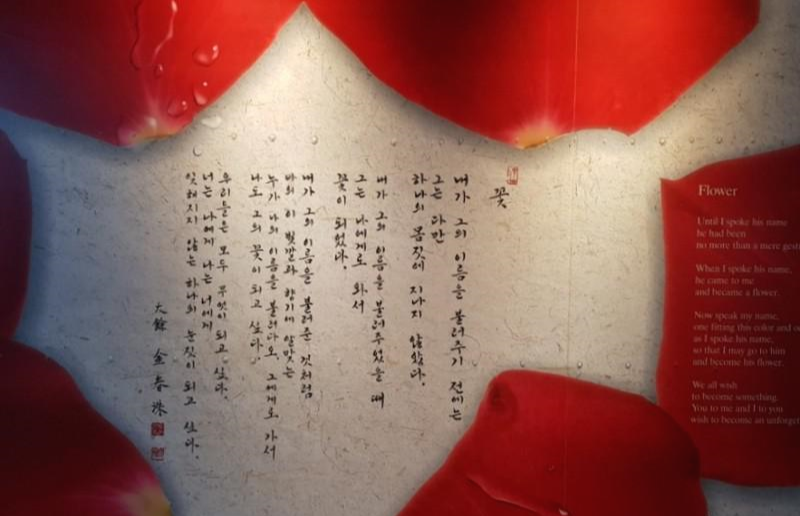 꽃
내가 그의 이름을 불러주기 전에는
그는 다만
하나의 몸짓에 지나지 않았다.
내가 그의 이름을 불러주었을 때
그는 나에게로 와서
꽃이 되었다.
내가 그의 이름을 불러준 것처럼
나의 이 빛깔과 향기에 알맞는
누가 나의 이름을 불러다오. 그에게로 가서
나도 그의 꽃이 되고 싶다.
우리들은 모두 무엇이 되고 싶다.
너는 나에게 나는 너에게
잊혀지지 않는 하나의 눈짓이 되고 싶다.
大餘 金春洙
Flower
Until I spoke his name
he had been
no more than a mere gest
When I spoke his name,
he came to me
and became a flower.
Now speak my name,
one fitting this color and o
as I spoke his name,
so that I may go to him
and become his flower.
We all wish
to become something.
You to me and I to you
wish to become an unforget